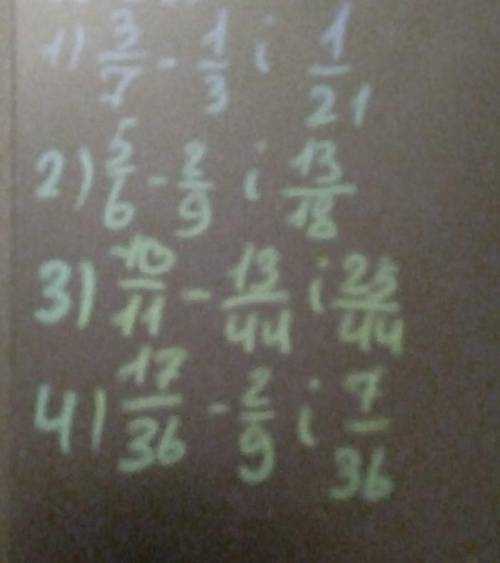 1) 3/7 - 1/3 i 1/21
2) 5/6 - 2/9 i 13/18
3) 10/11 - 13/44 i 25/44
4) 17/36 - 2/9 i 7/36